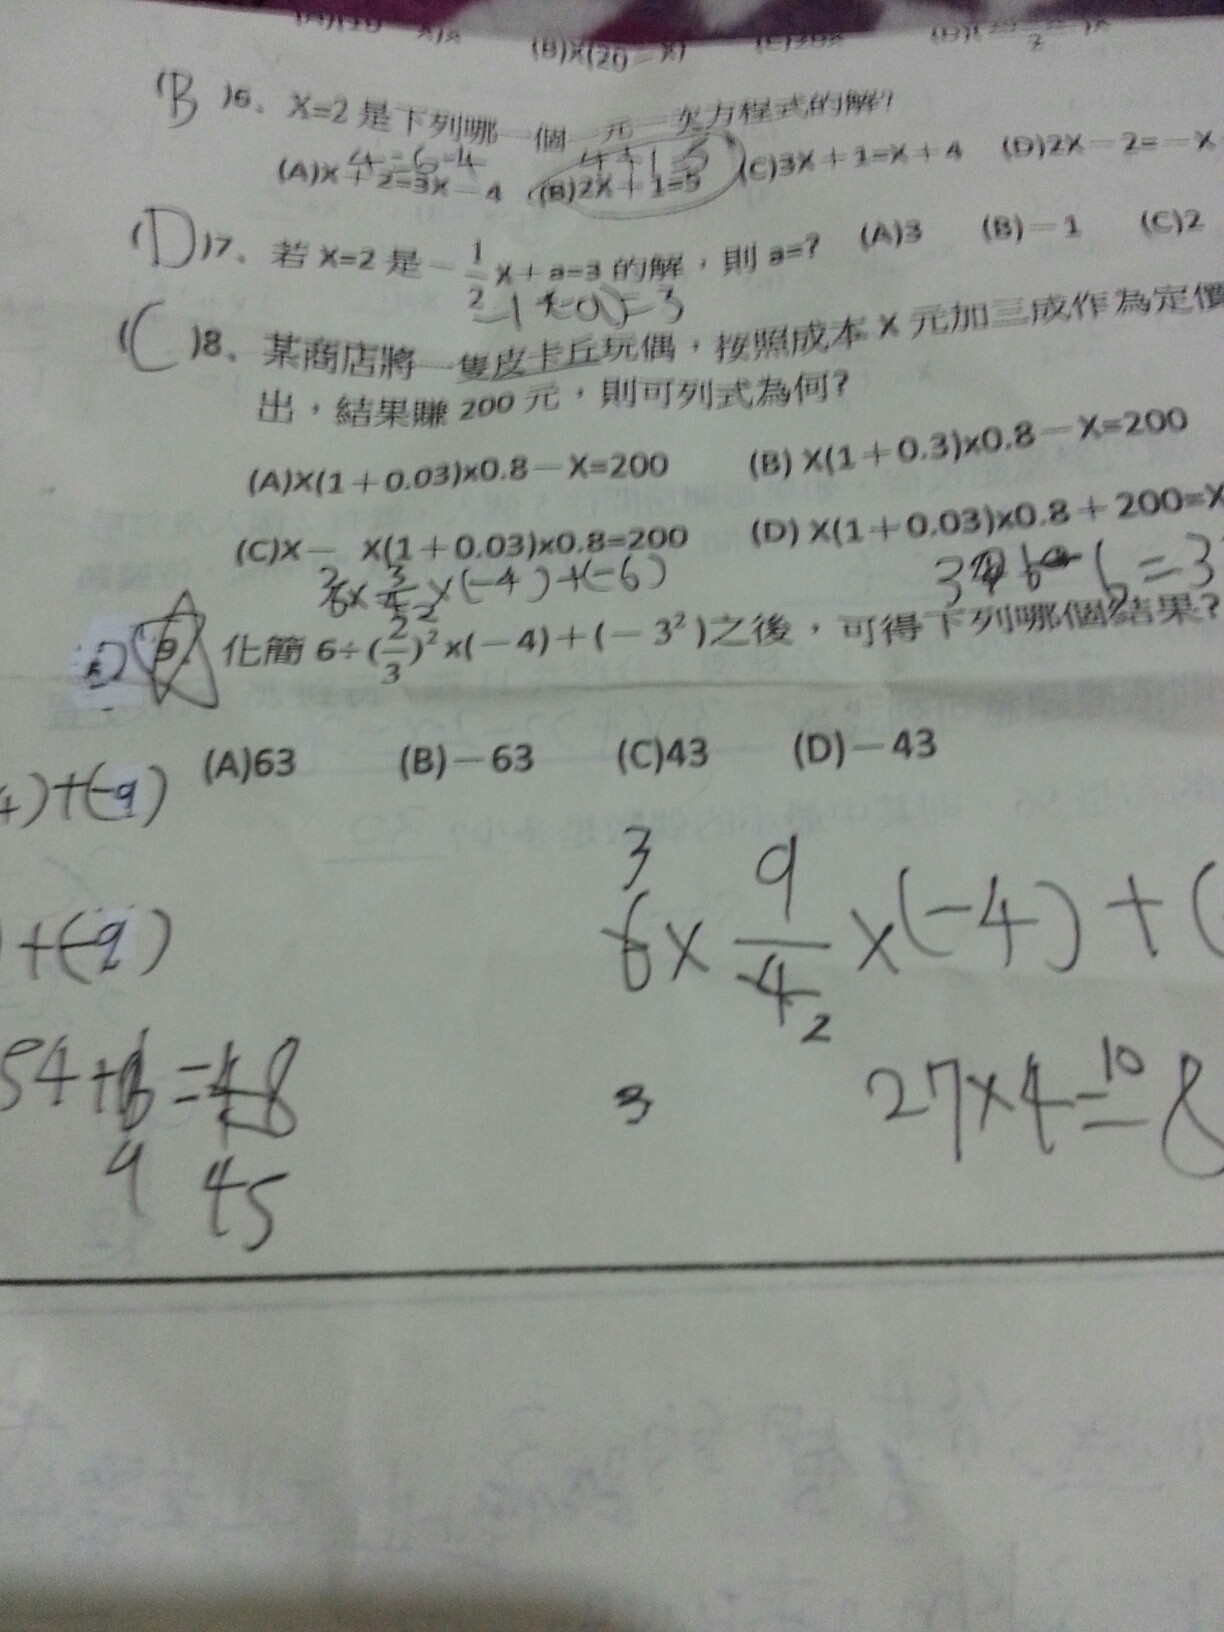 (B)X(20－X)
(B)6、X=2是下列哪一個一元一次方程式的解?
4=6-4 4+1=5
(A)X＋2=3X－4 (B)2X＋1=5 (C)3X＋1=X＋4 (D)2X－2=－X
(D)7、若X=2是－1/2 X＋a=3的解，則a=? (A)3 (B)－1 (C)2
-1+a=3
(C)8、某商店將一隻皮卡丘玩偶，按照成本X元加三成作為定價
出，結果賺200元，則可列式為何?
(A)X(1＋0.03)x0.8－X=200 (B) X(1＋0.3)x0.8－X=200
(C)X－ X(1＋0.03)x0.8=200 (D) X(1＋0.03)x0.8＋200=X
×(-4)+(-6)
9. 化簡6÷(2/3)²x(－4)＋(－3²)之後，可得下列哪個結果?
(A)63 (B)－63 (C)43 (D)－43
4)+(-9)
3
6×9/4×(-4)+(
2
)+(-9)
54+
3
27×4=108
9 45